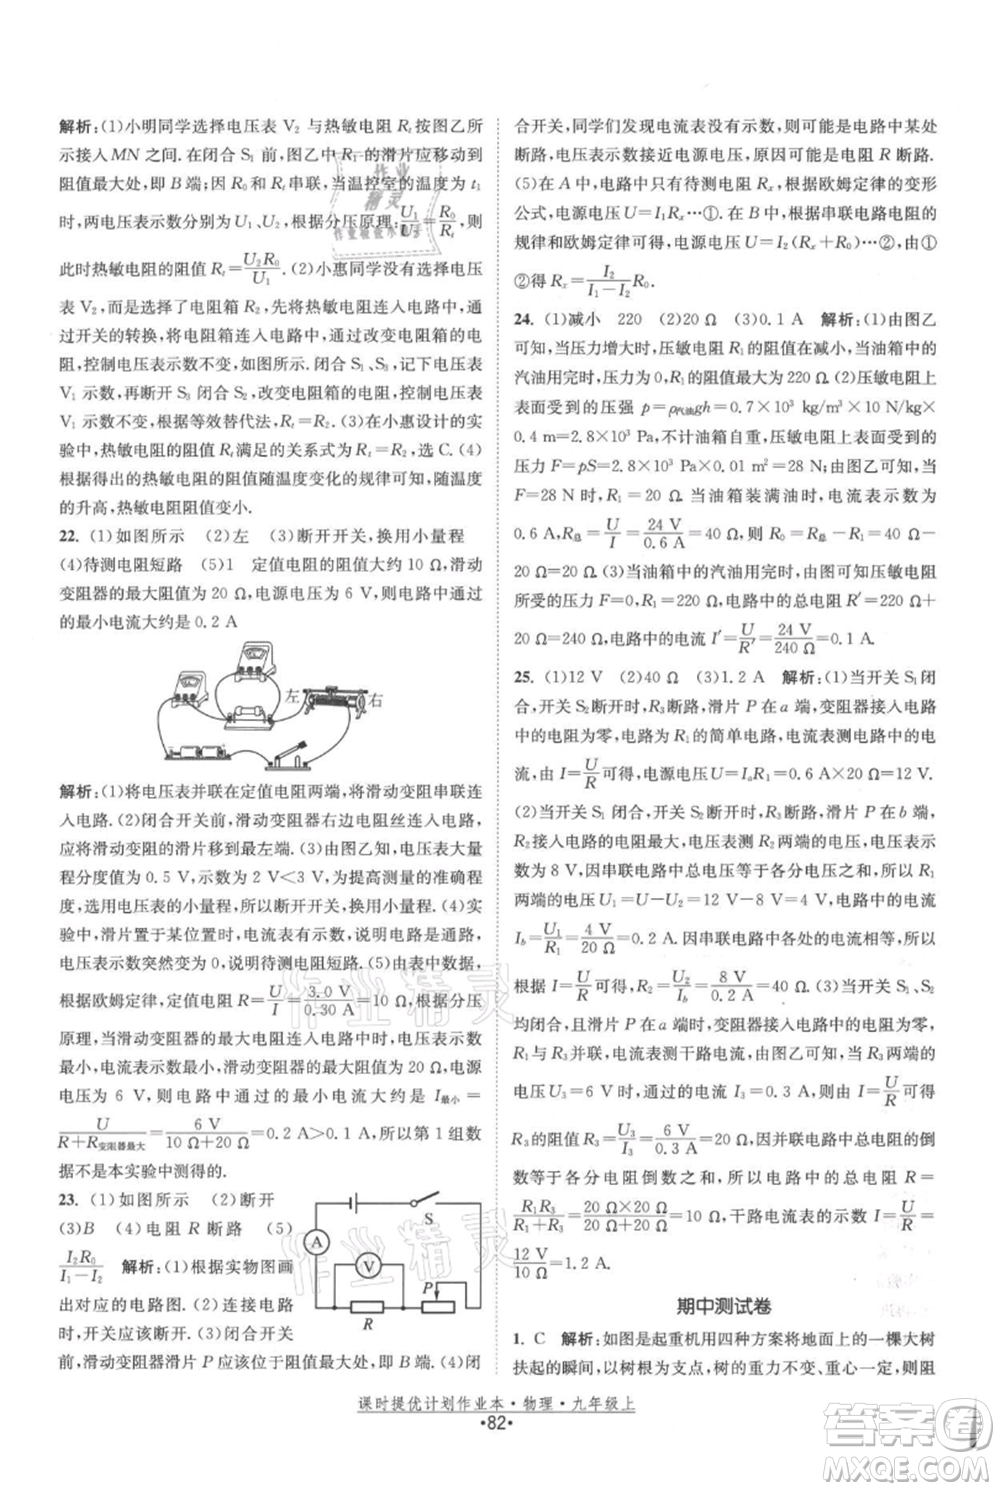 解析:(1)小明同学选择电压表 V₂ 与热敏电阻 Rₜ 按图乙所
示接入 MN 之间. 在闭合 S₁ 前,图甲中 R₁ 的滑片应移动到
阻值最大处,即 B 端;R₀ 与 Rₜ 串联,当温控室的温度为 t₁
时,两电压表示数分别为 U₁、U₂,根据分压原理:U₁/U₂=R₀/Rₜ,则
此时热敏电阻的阻值 Rₜ=U₂R₀/U₁. (2)小惠同学没有选择电压
表 V₂,而是选择了电阻箱 R₂,先将热敏电阻连入电路中,经
过开关的转换,将电阻箱连入电路中,通过改变电阻箱电阻,
控制电压表示数不变,如图所示. 闭合 S₁、S₂,记下电压表
V₁ 示数,再断开 S₂ 闭合 S₃,改变电阻箱电阻,控制电压表
V₁ 示数不变,根据等效替代法,Rₜ=R₂. (3)在小惠设计的实
验中,热敏电阻的阻值 Rₜ 满足的关系式为 Rₜ=R₂,选C. (4)
根据热敏电阻的阻值随温度变化的规律可知,随温度
的升高,热敏电阻阻值变小.
22. (1)如图所示 (2)左 (3)断开开关,换用小量程
(4)待测电阻短路 (5)1 定值电阻的阻值大约 10 Ω,滑动
变阻器的最大阻值为 20 Ω,电源电压为 6 V,此时电路中
的最小电流大约是 0.2 A
左 右
解析:(1)将电压表并联在定值电阻两端,将变阻器串联接
入电路. (2)闭合开关前,滑动变阻器右边电阻丝连入电路,
应将滑动变阻的滑片移到最左端. (3)如图乙,电压表大量
程分度值为 0.5 V,示数为 2 V<3 V,为提高测量的精确程
度,选用电压表的小量程,所以断开开关,换用小量程. (4)实
验中,滑片置于某位置时,电流表有示数且未超过量程,电压
表示数突然变为 0,说明待测电阻短路. (5)根据第3组数据,
根据欧姆定律,定值电阻 R=U/I=3.0 V/0.30 A=10 Ω,由图示可
知,当滑动变阻器的电阻最大时,电路的总电阻最大,电流表
示数最小,变阻器的最大电阻大约为 20 Ω,电源
电压为 6 V,所以,电路中的最小电流大约为 I最小=
U/(R+R变阻器最大)=6 V/(10 Ω+20 Ω)=0.2 A>0.1 A,所以第 1 组数
据不是本实验中测得的.
23. (1)如图所示 (2)断开
(3)B (4)电阻 R 断路 (5)
I₂R₀/(I₁−I₂) 解析:(1)根据实物图画
出对应的电路图. (2)连接电路
时,开关应该断开. (3)闭合开关
前,滑动变阻器滑片 P 应该位于阻值最大处,即 B 端. (4)闭
S
A
V
P
R
合开关,同学们发现电流表没有示数,则可能是电路中某处
断路,电压表示数接近电源电压,应该是电阻 R 断路.
(5)在 A 中,电路中只有待测电阻 Rₓ,根据欧姆定律的变形
公式,此时的电压 U=I₁Rₓ…①. 在 B 中,根据串联电路电阻的
规律和欧姆定律可知,电压 U=I₂(Rₓ+R₀)…②,由①
②得 Rₓ=I₂/(I₁−I₂)R₀.
24. (1)减小 220 (2)20 Ω (3)0.1 A 解析:(1)由图乙
可知,当压力增大时,压敏电阻 R₁ 的阻值在减小,当油箱中的
汽油用完时,压力为 0,R₁ 的阻值最大为 220 Ω. (2)压敏电阻上
表面受到的压强 p=ρ汽油gh=0.7×10³ kg/m³×10 N/kg×
0.4 m=2.8×10³ Pa,不计油箱自重,压敏电阻上表面受到的
压力 F=pS=2.8×10³ Pa×0.01 m²=28 N,由图乙可知,当
F=28 N 时,R₁=20 Ω. 当油箱装满油时,电流表示数为
0.6 A,R总=U/I=24 V/0.6 A=40 Ω,则 R₀=R总−R₁=40 Ω−
20 Ω=20 Ω. (3)当油箱中的汽油用完时,此时压敏电阻
所受的压力为 0,R₁'=220 Ω,电路中的总电阻 R'=220 Ω+
20 Ω=240 Ω,电路中的电流 I'=U/R'=24 V/240 Ω=0.1 A.
25. (1)12 V (2)40 Ω (3)1.2 A 解析:(1)当开关 S₁闭
合,开关 S₂断开时,R₃断路,滑片 P 在 a 端,变阻器接入电路
中的阻值为零,电路为 R₁ 的简单电路,电流表测电路中的电
流,由 I=U/R可得,电源电压 U=IₐR₁=0.6 A×20 Ω=12 V.
(2)当开关 S₁ 闭合,开关 S₂断开时,R₃断路,滑片 P 在 b 端,
R₂接入电路的电阻最大,电压表测 R₂ 两端的电压,示数为
8 V. 因串联电路中总电压等于各分电压之和,所以 R₁
两端的电压 U₁=U−U₂=12 V−8 V=4 V. 电路中的电流
I_b=U₁/R₁=4 V/20 Ω=0.2 A. 因串联电路中各处的电流相等,所以
R₂ 的最大阻值 R₂=U₂/I_b=8 V/0.2 A=40 Ω. (3)当开关 S₁、S₂
均闭合,且滑片 P 在 a 端时,变阻器接入电路中的电阻为零,
R₁ 与 R₃ 并联,电流表测干路电流,由图乙可知,当 R₃两端的
电压 U₃=6 V 时,通过的电流 I₃=0.3 A,由 I=U/R可得
R₃的阻值 R₃=U₃/I₃=6 V/0.3 A=20 Ω. 因并联电路中总电阻的倒
数等于各分电阻倒数之和,所以,电路中的总电阻 R=
R₁R₃/(R₁+R₃)=20 Ω×20 Ω/(20 Ω+20 Ω)=10 Ω,干路电流表的示数 I=U/R=
12 V/10 Ω=1.2 A.
期中测试卷
1. C 解析:如图是起重机用四种方案将地面上的一棵大树
扶起的瞬间,以树根为支点,大树的重力不变、重心一定,则阻
课时提优计划作业本·物理·九年级上
·82·
作业精灵
答案圈
MXQE.COM